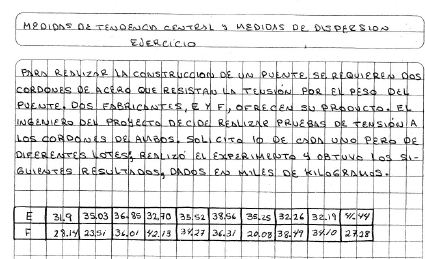 MEDIDAS DE TENDENCIA CENTRAL Y MEDIDAS DE DISPERSION
EJERCICIO
PARA REALIZAR LA CONSTRUCCION DE UN PUENTE, SE REQUIEREN DOS
CORDONES DE ACERO QUE RESISTAN LA TENSIÓN POR EL PESO DEL
PUENTE. DOS FABRICANTES, E Y F, OFRECEN SU PRODUCTO. EL
INGENIERO DEL PROYECTO DECIDE REALIZAR PRUEBAS DE TENSIÓN A
LOS CORDONES DE AMBOS. SOLICITO 10 DE CADA UNO PERO DE
DIFERENTES LOTES, REALIZÓ EL EXPERIMENTO Y OBTUVO LOS SI-
GUIENTES RESULTADOS, DADOS EN MILES DE KILOGRAMOS.
E 31.9 35.03 36.85 32.70 35.52 38.56 35.25 32.26 32.19
F 28.14 23.51 36.01 42.13 34.27 36.31 20.08 38.49 34.10 27.28